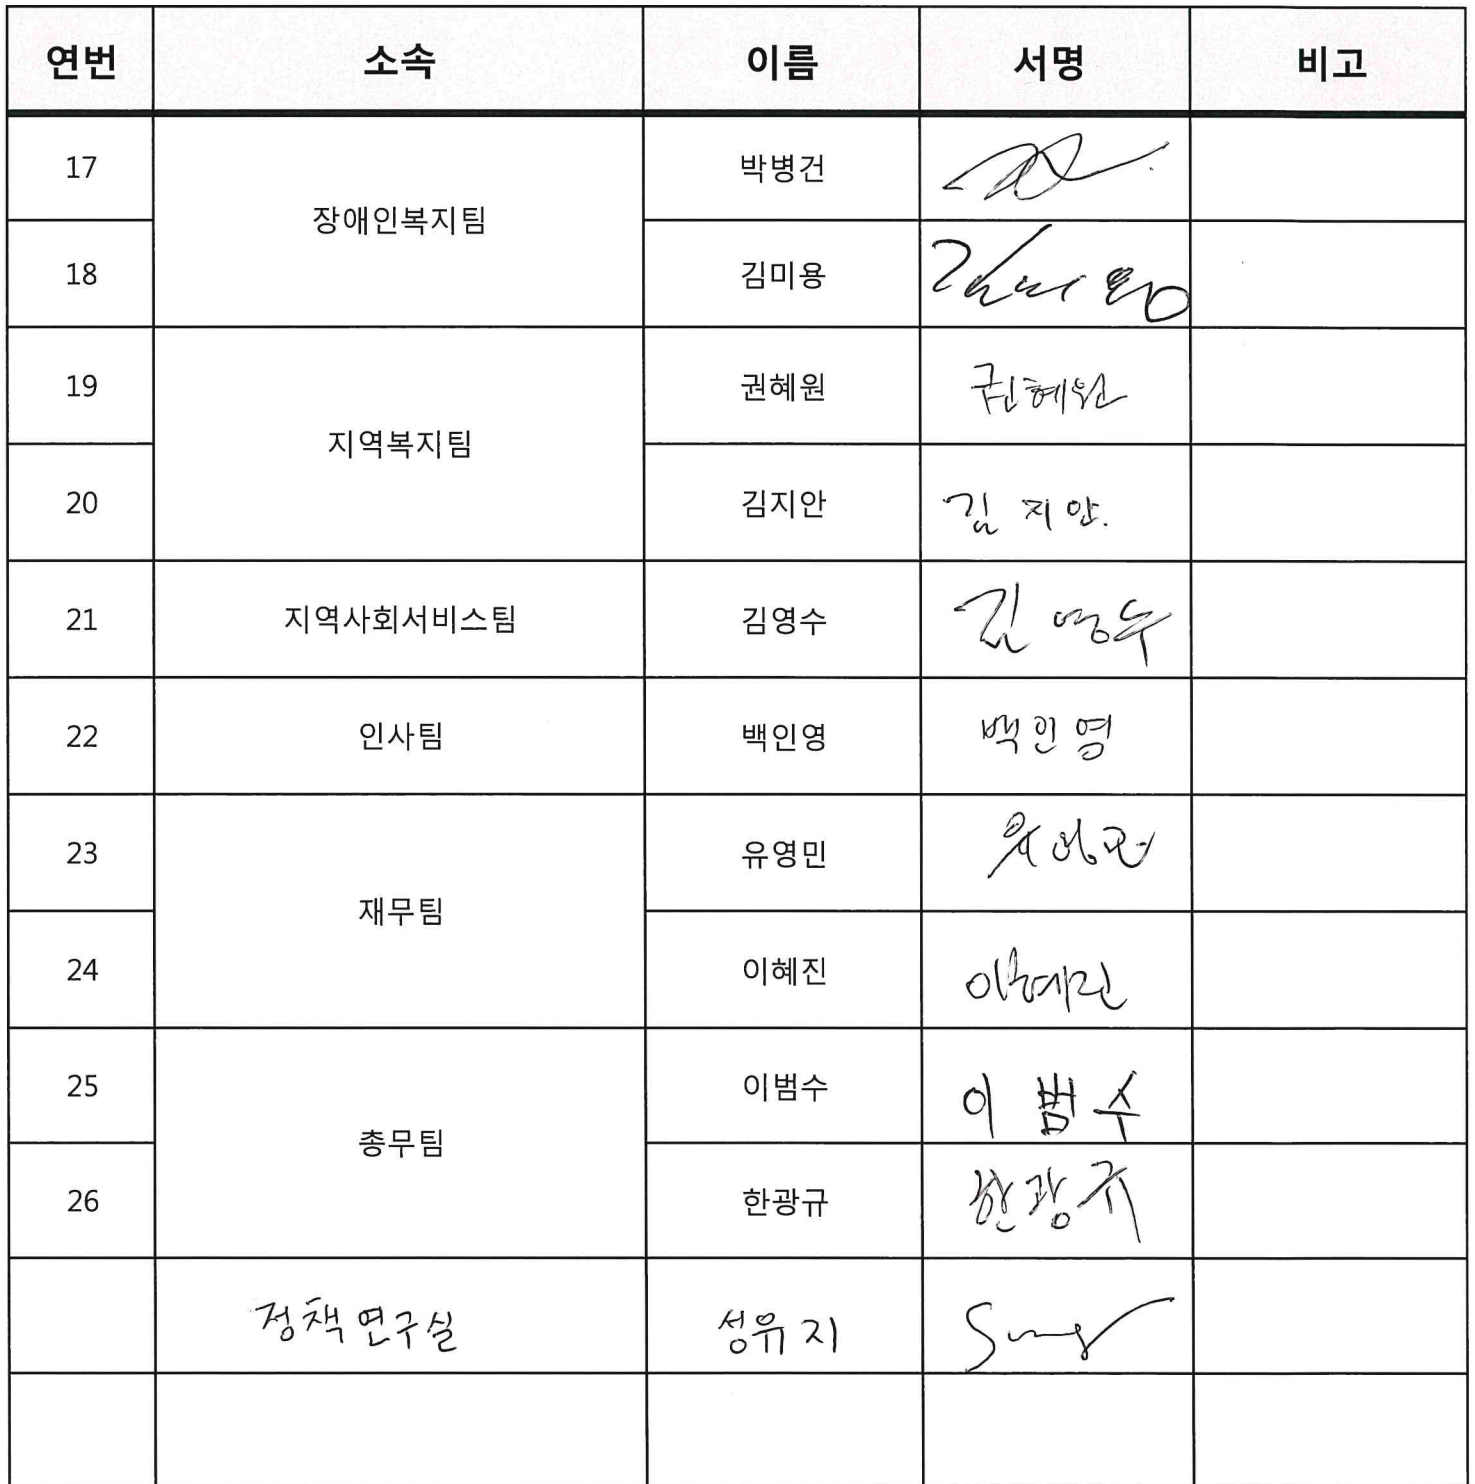 연번 소속 이름 서명 비고
17 장애인복지팀 박병건
18 김미용 김미용
19 지역복지팀 권혜원 권혜원
20 김지안 김지안.
21 지역사회서비스팀 김영수 김영수
22 인사팀 백인영 백인영
23 재무팀 유영민 유영민
24 이혜진 이혜진
25 총무팀 이범수 이범수
26 한광규 한광규
정책연구실 성유지 Sung